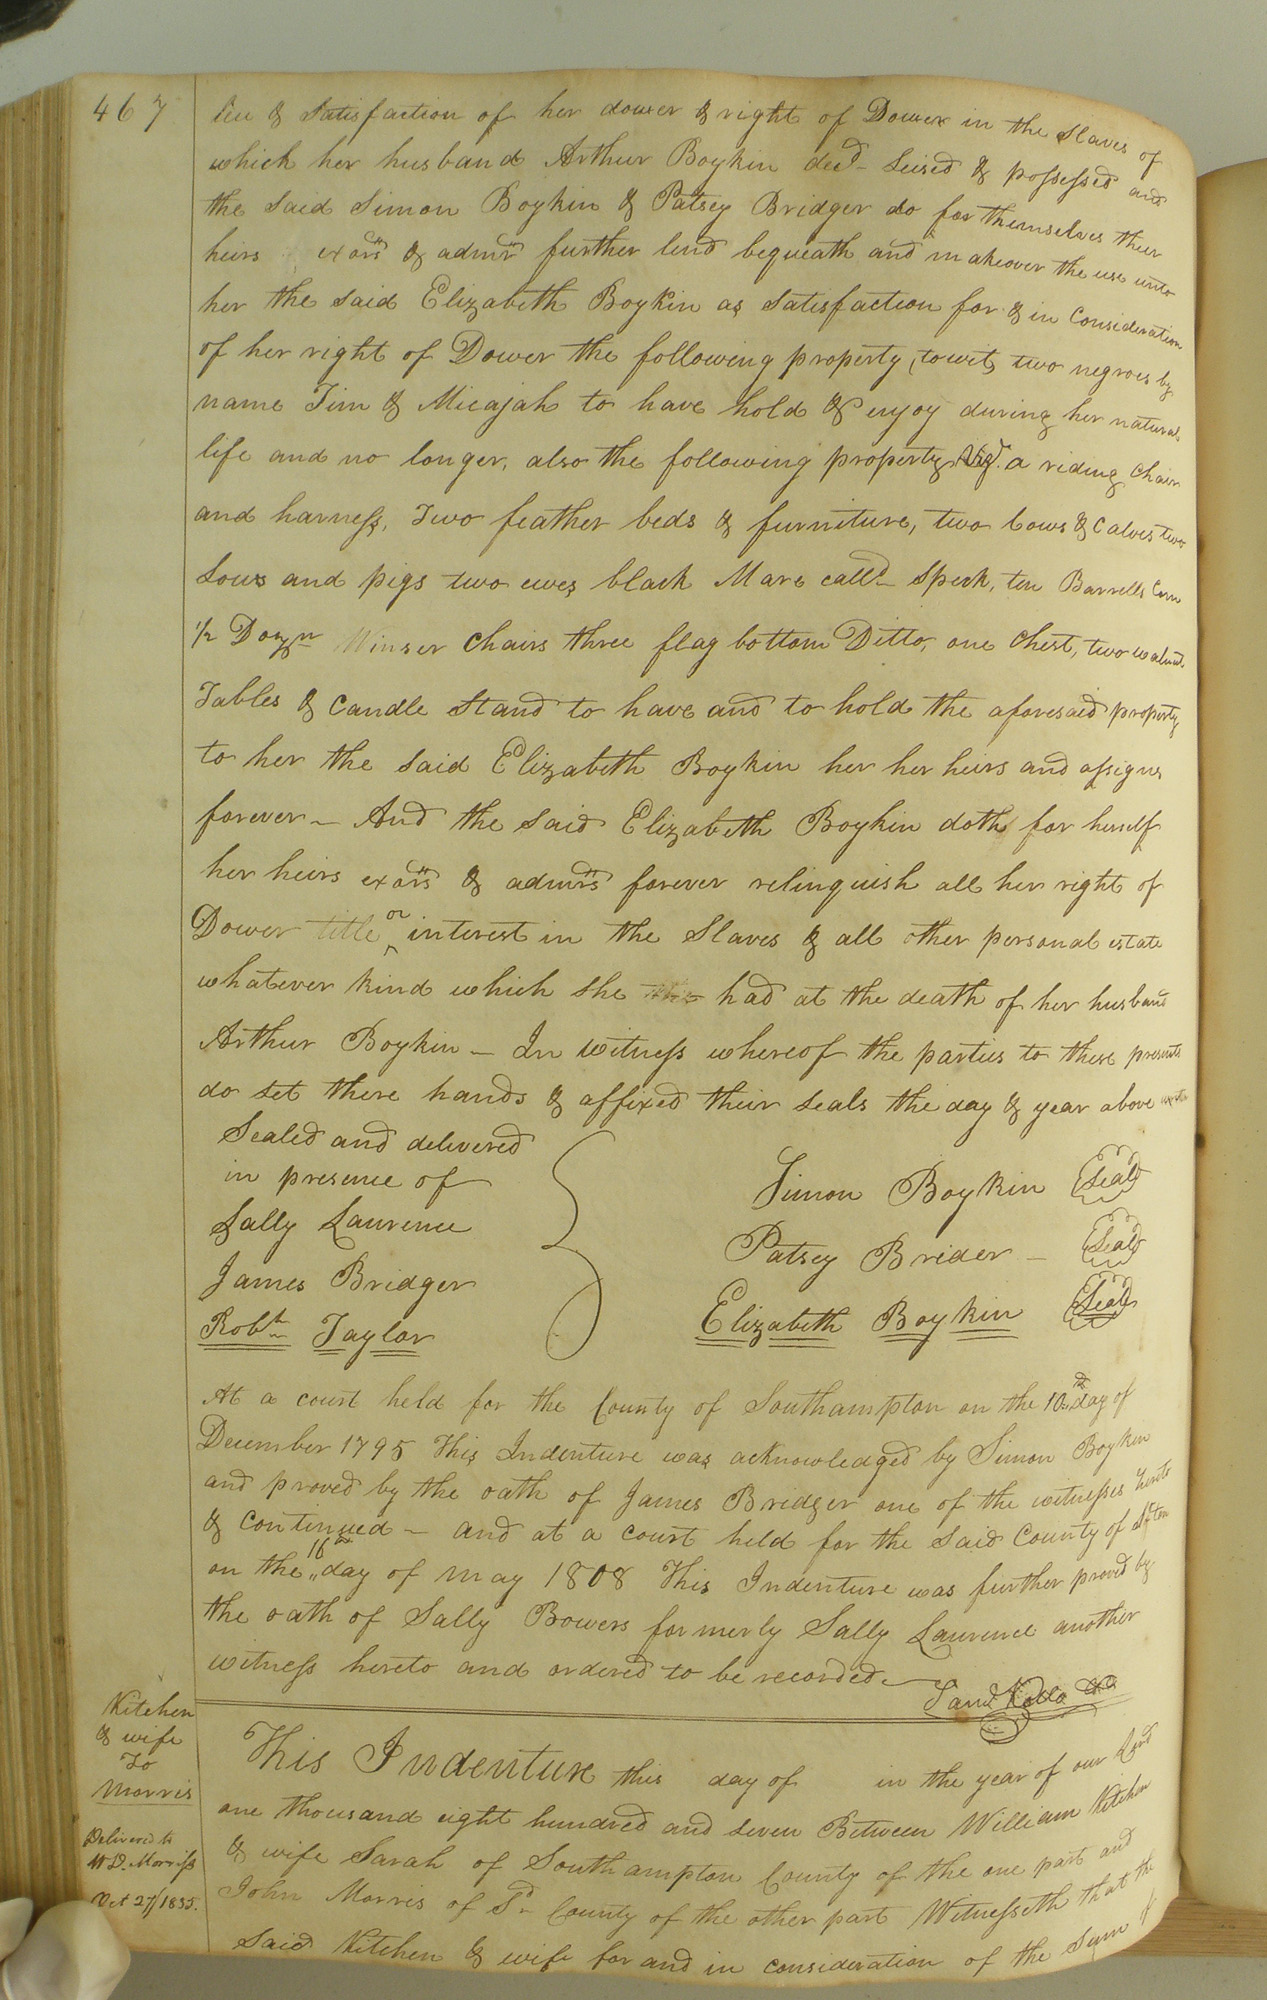 467
lieu & Satisfaction of her dower & right of Dower in the Slaves of
which her husband Arthur Boykin decd. Seised & possessed and
the said Simon Boykin & Patsey Bridger do for themselves their
heirs exōrs & admrs further lend bequeath and makeover the use unto
her the said Elizabeth Boykin as Satisfaction for & in Consideration
of her right of Dower the following property, (towit, two negroes by
name Jim & Micajah to have hold & enjoy during her natural
life and no longer, also the following property, Vizt. a riding Chair
and harness, Two feather beds & furniture, two Cows & Calves two
Sows and pigs two ewes black Mare calld Speck, ten Barrells Corn
1/2 Dozn Winser Chairs three flag bottom Ditto, one Chest, two walnut
Tables & Candle Stand to have and to hold the aforesaid property
to her the said Elizabeth Boykin her her heirs and assigns
forever — And the said Elizabeth Boykin doth for herself
her heirs exōrs & admrs forever relinquish all her right of
Dower title or interest in the Slaves & all other personal estate
whatever kind which she had at the death of her husband
Arthur Boykin — In witness whereof the parties to these presents
do set there hands & affixed their seals the day & year above written
Sealed and delivered
in presence of
Sally Laurence
James Bridger
Robt. Taylor
Simon Boykin Seal
Patsey Brider — Seal
Elizabeth Boykin Seal
At a court held for the County of Southampton on the 10th day of
December 1795 This Indenture was acknowledged by Simon Boykin
and proved by the oath of James Bridger one of the witnesses hereto
& continued — and at a court held for the said County of Ston
on the 16th day of may 1808 This Indenture was further proved by
the oath of Sally Bowers formerly Sally Laurence another
witness hereto and ordered to be recorded —
Saml Kello CC
Kitchen
& wife
To
Morris
Delivered to
W D. Morriss
Oct 27/1835.
This Indenture this day of in the year of our Lord
one thousand eight hundred and seven Between William Kitchen
& wife Sarah of Southampton County of the one part and
John Morris of Sd. County of the other part Witnesseth that the
said Kitchen & wife for and in consideration of the Sum of